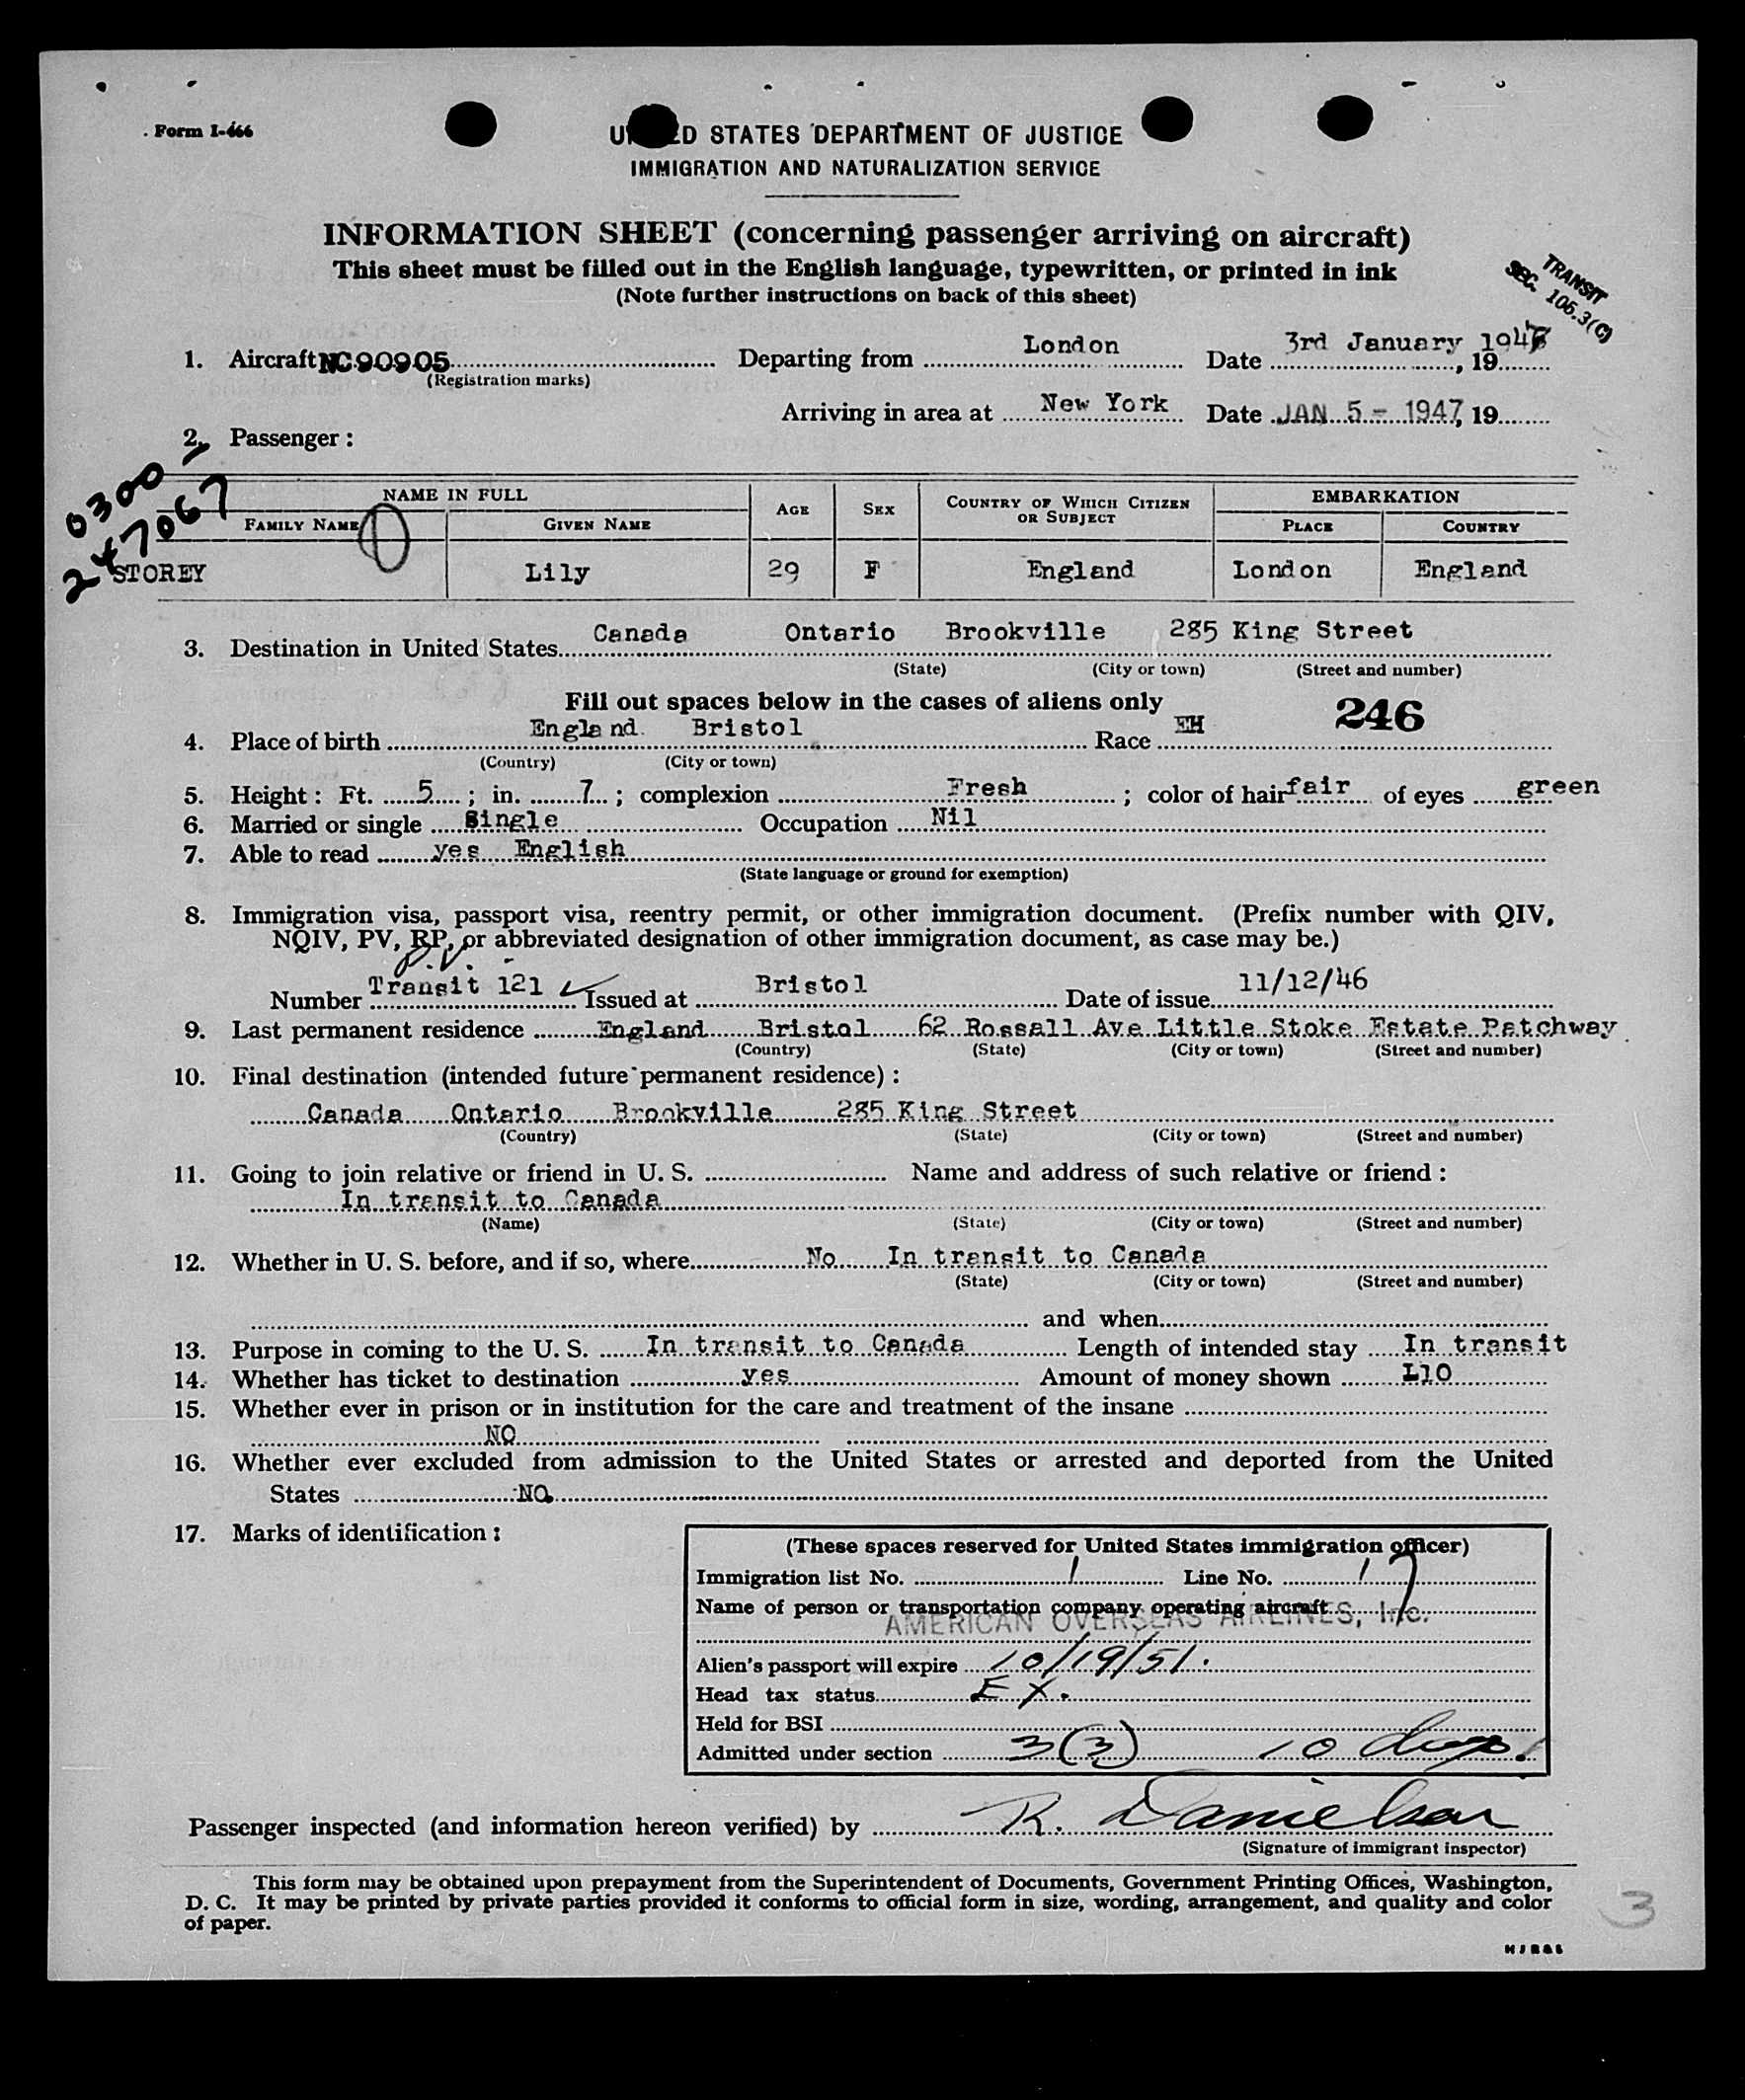 Form I-466
UNITED STATES DEPARTMENT OF JUSTICE
IMMIGRATION AND NATURALIZATION SERVICE
INFORMATION SHEET (concerning passenger arriving on aircraft)
This sheet must be filled out in the English language, typewritten, or printed in ink
(Note further instructions on back of this sheet)
TRANSIT
SEC. 105.3(C)
1. Aircraft NC90905 Departing from London Date 3rd January 1947, 19
(Registration marks)
Arriving in area at New York Date JAN 5 - 1947, 19
2. Passenger :
0300
247067
NAME IN FULL AGE SEX COUNTRY OF WHICH CITIZEN OR SUBJECT EMBARKATION
FAMILY NAME GIVEN NAME PLACE COUNTRY
STOREY Lily 29 F England London England
3. Destination in United States Canada Ontario Brookville 285 King Street
(State) (City or town) (Street and number)
Fill out spaces below in the cases of aliens only
246
4. Place of birth England Bristol Race EH
(Country) (City or town)
5. Height : Ft. 5 ; in. 7 ; complexion Fresh ; color of hair fair of eyes green
6. Married or single Single Occupation Nil
7. Able to read yes English
(State language or ground for exemption)
8. Immigration visa, passport visa, reentry permit, or other immigration document. (Prefix number with QIV,
NQIV, PV, RP, or abbreviated designation of other immigration document, as case may be.)
P.V.
Number Transit 121 Issued at Bristol Date of issue 11/12/46
9. Last permanent residence England Bristol 62 Rossall Ave Little Stoke Estate Patchway
(Country) (State) (City or town) (Street and number)
10. Final destination (intended future permanent residence) :
Canada Ontario Brookville 285 King Street
(Country) (State) (City or town) (Street and number)
11. Going to join relative or friend in U. S. Name and address of such relative or friend :
In transit to Canada
(Name) (State) (City or town) (Street and number)
12. Whether in U. S. before, and if so, where No In transit to Canada
(State) (City or town) (Street and number)
and when
13. Purpose in coming to the U. S. In transit to Canada Length of intended stay In transit
14. Whether has ticket to destination yes Amount of money shown £10
15. Whether ever in prison or in institution for the care and treatment of the insane
NO
16. Whether ever excluded from admission to the United States or arrested and deported from the United
States NO
17. Marks of identification :
(These spaces reserved for United States immigration officer)
Immigration list No. 1 Line No. 17
Name of person or transportation company operating aircraft
AMERICAN OVERSEAS AIRLINES, Inc.
Alien's passport will expire 10/19/51.
Head tax status EX.
Held for BSI
Admitted under section 3(3) 10 days.
Passenger inspected (and information hereon verified) by R. Danielson
(Signature of immigrant inspector)
This form may be obtained upon prepayment from the Superintendent of Documents, Government Printing Offices, Washington,
D. C. It may be printed by private parties provided it conforms to official form in size, wording, arrangement, and quality and color
of paper.
3